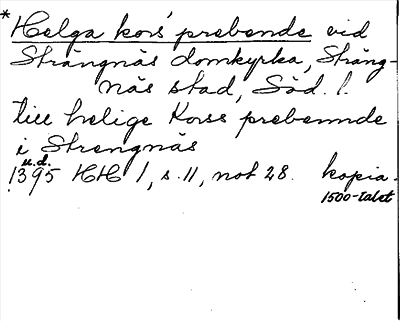 * Helga kors' prebende vid
Strängnäs domkyrka, Sträng-
näs stad, Söd. l.
till helige Korss prebennde
i Strengnäs
u.d.
1395 HH 1, s. 11, not 28. kopia.
1500-talet